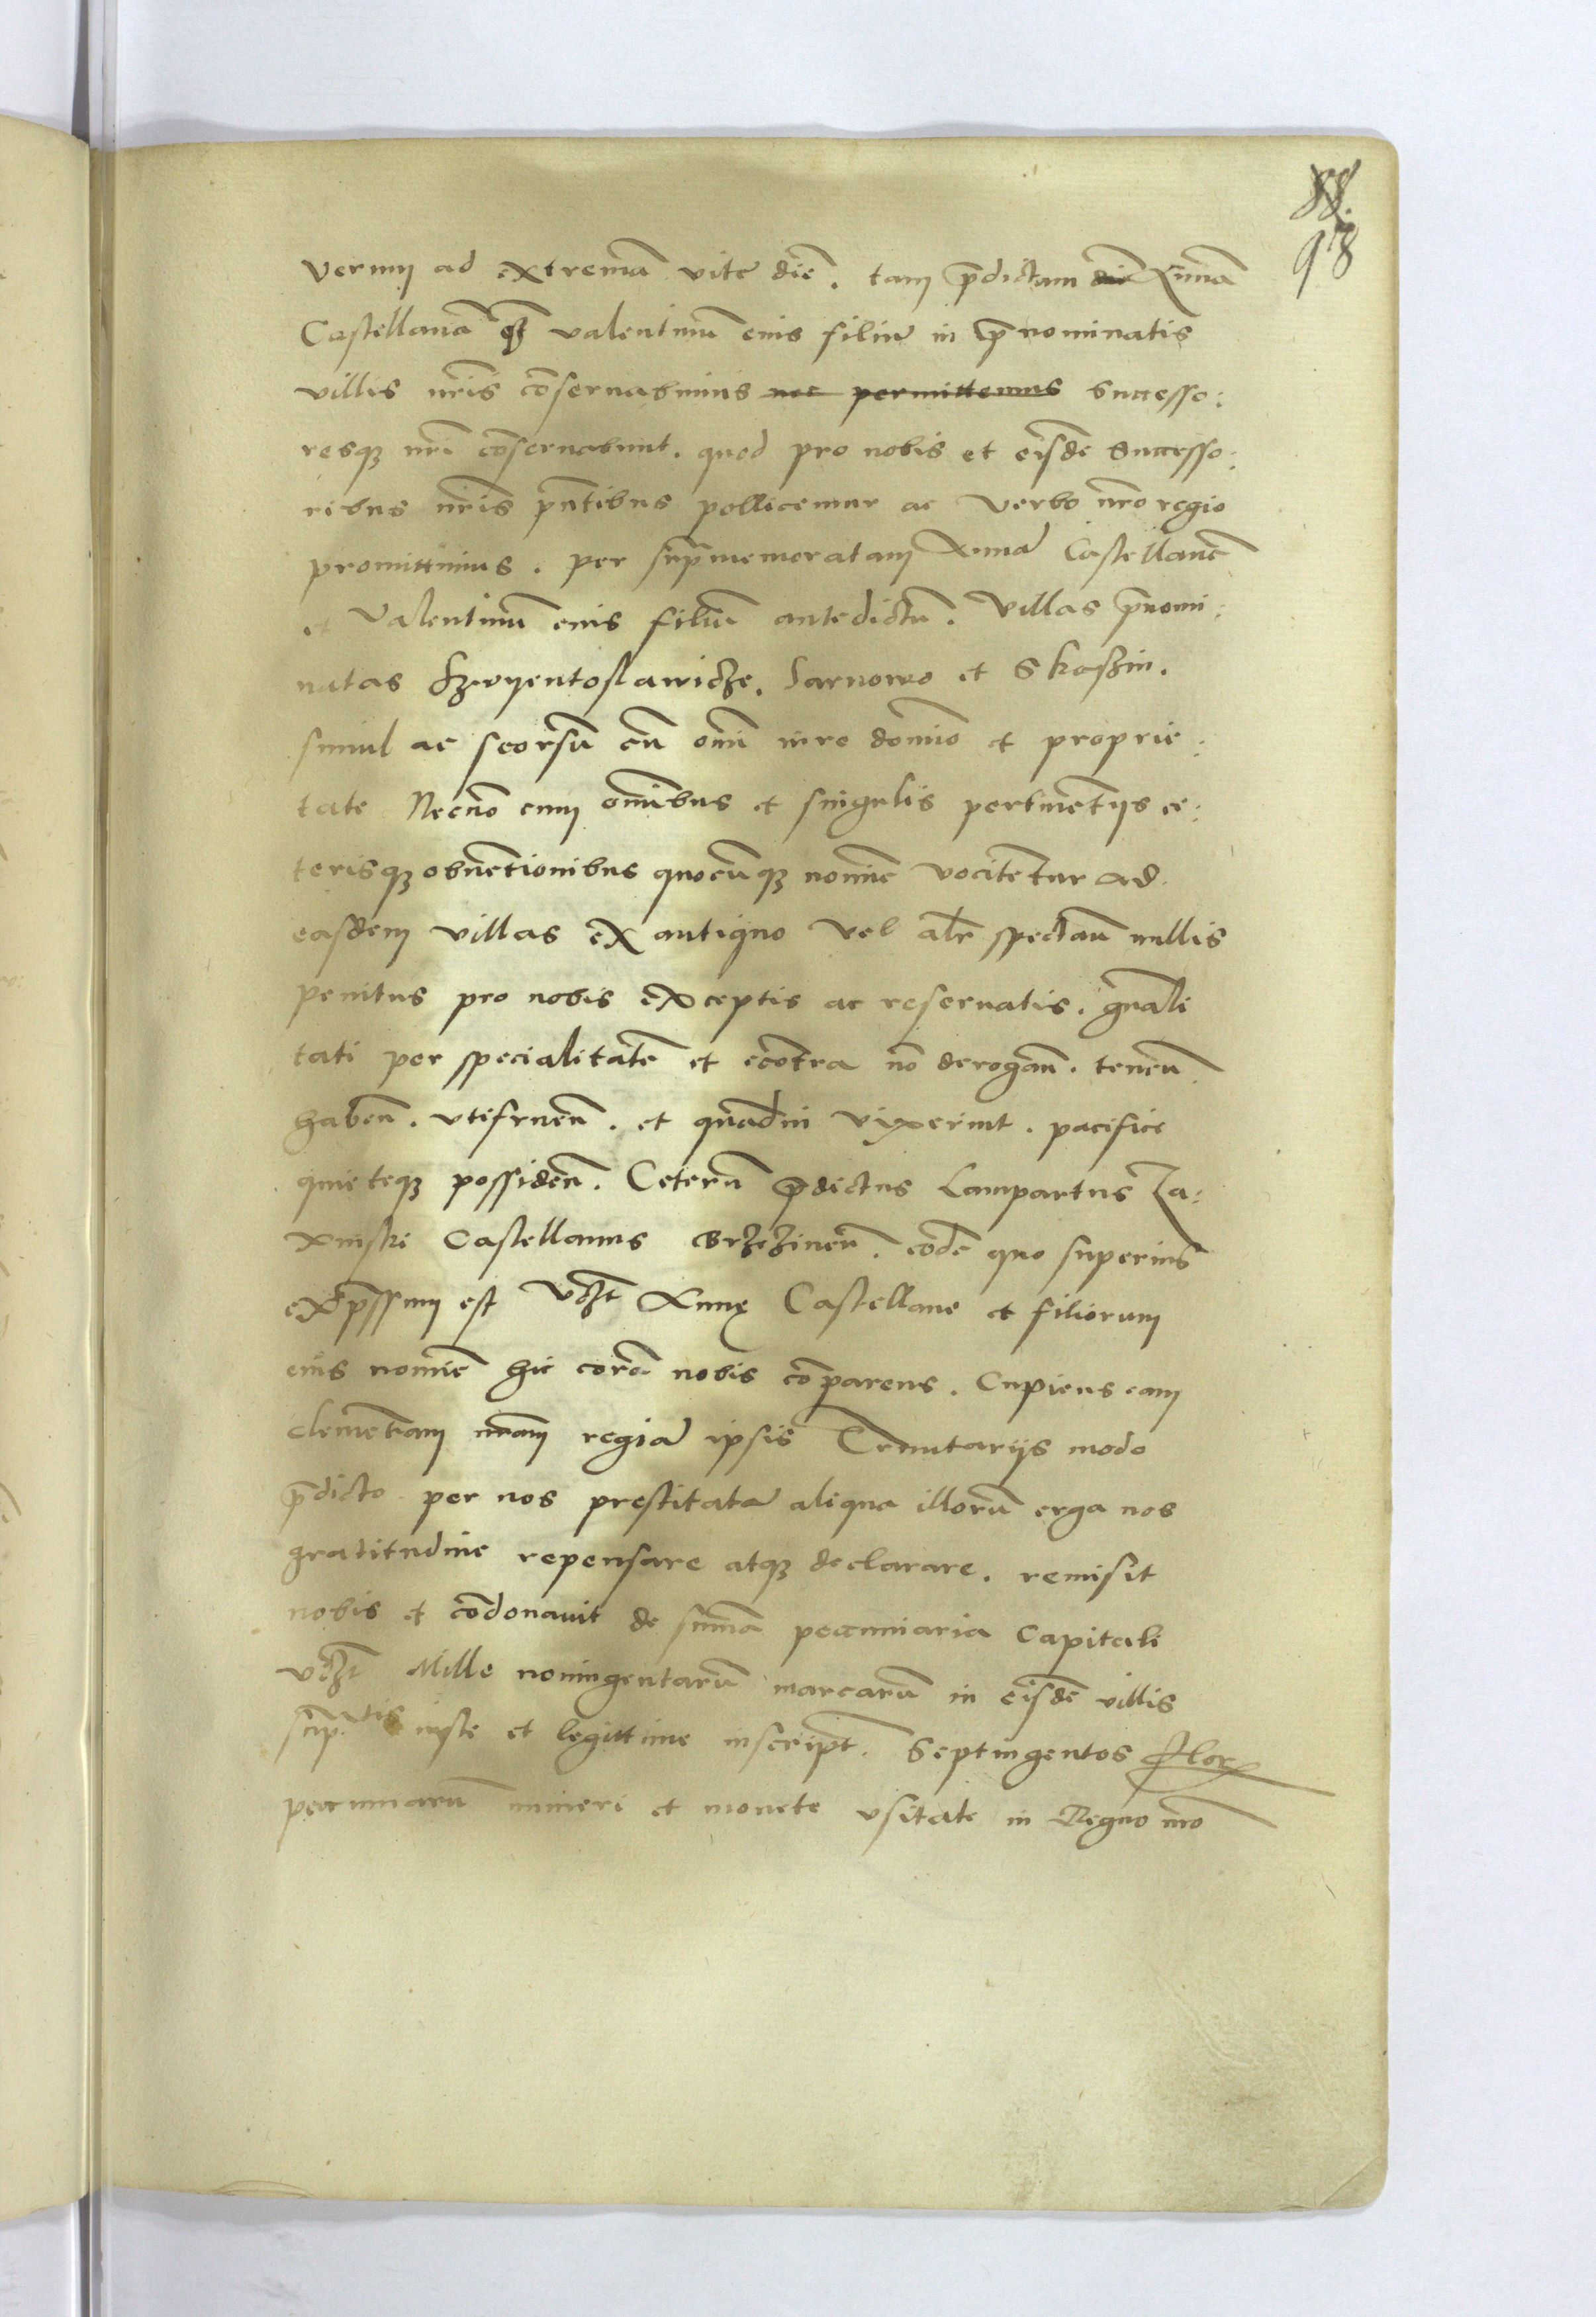 88.
98
verum ad extremā vite diē. tam p̄dictam diē Annā
Castellanā q̃ȝ valentinū eius filiū in p̄nominatis
villis nr̄is cōseruabimus nec permittemus Successo:
resqȝ nr̄i cōseruabunt. quod pro nobis et eisdē Successo:
ribus nr̄is pn̄tibus pollicemur ac verbo nr̄o regio
promittimus. per sup̄memoratam Annā Castellanā
et Valentinū eius filiū antedictū. Villas p̄nomi:
natas Szvyentoslawicze. Sarnowo et Skaszin.
simul ac seorsū cū om̄i iure dominio et proprie:
tate Necnō cum om̄ibus et singulis pertinētijs ce:
terisqȝ obuētionibus quocūqȝ nomīe vocitētur ad
easdem villas ex antiquo vel alr̄ spectan̄ nullis
penitus pro nobis exceptis ac reseruatis. gn̄ali
tati per specialitatē et ecōtra nō derogan̄. tenen̄
haben̄. vtifruen̄. et quādiu vixerint. pacifice
quieteqȝ possiden̄. Ceterū p̄dictus Lampartus Za:
xinski Castellanus Brzezinen̄. eodē quo superius
exp̄ssum est vcȝt Annę Castellane et filiorum
eius nomīe hic corā nobis cōparens. Cupiens eam
clemētiam nr̄am regiā ipsis Tenutarijs modo
p̄dicto per nos prestitatā aliqua illorū erga nos
gratitudine repensare atqȝ declarare. remisit
nobis et cōdonauit de sum̄a pecuniaria Capitali
vcȝt Mille noningentarū marcarū in eisdē villis
sup̄ tis iuste et legittime inscript̄. Septingentos Flor
pecuniarū nūmeri et monete vsitate in Regno nr̄o